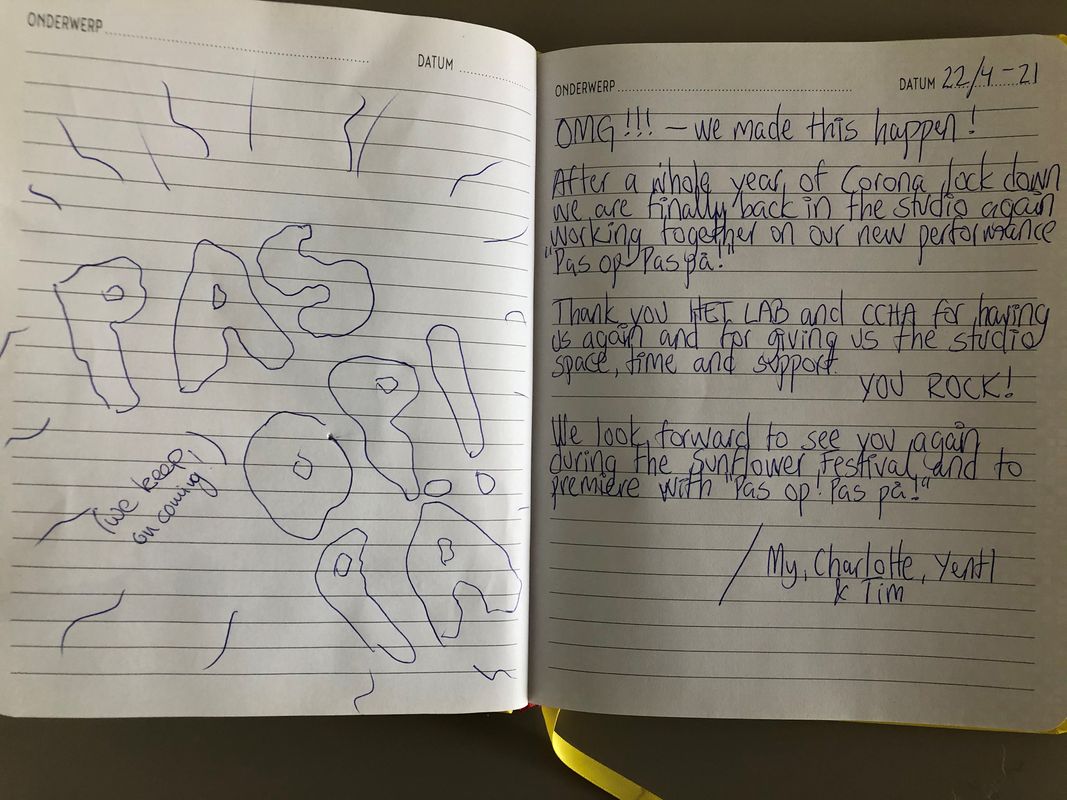 ONDERWERP
DATUM
PAS
OP!
PÅ
(we keep
on coming!)
ONDERWERP
DATUM 22/4-21
OMG!!! - we made this happen!
After a whole year of Corona lock down
we are finally back in the studio again
working together on our new performance
"Pas op Pas på!"
Thank you HET LAB and CCHA for having
us again and for giving us the studio
space, time and support.
YOU ROCK!
We look forward to see you again
during the Sunflower Festival and to
premiere with "Pas op! Pas på!"
/ My, Charlotte, Yentl
& Tim